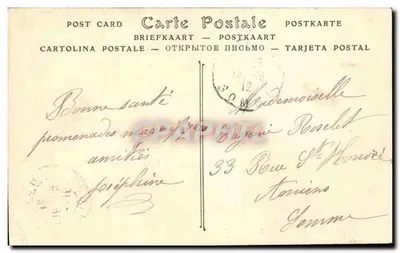 POST CARD Carte Postale POSTKARTE
BRIEFKAART — POSTKAART
CARTOLINA POSTALE — ОТКРЫТОЕ ПИСЬМО — TARJETA POSTAL
Bonne santé
promenades magnifiques
amitiés
Joséphine
Mademoiselle
Eugénie Roselet
33 Rue St Honoré
Amiens
Somme